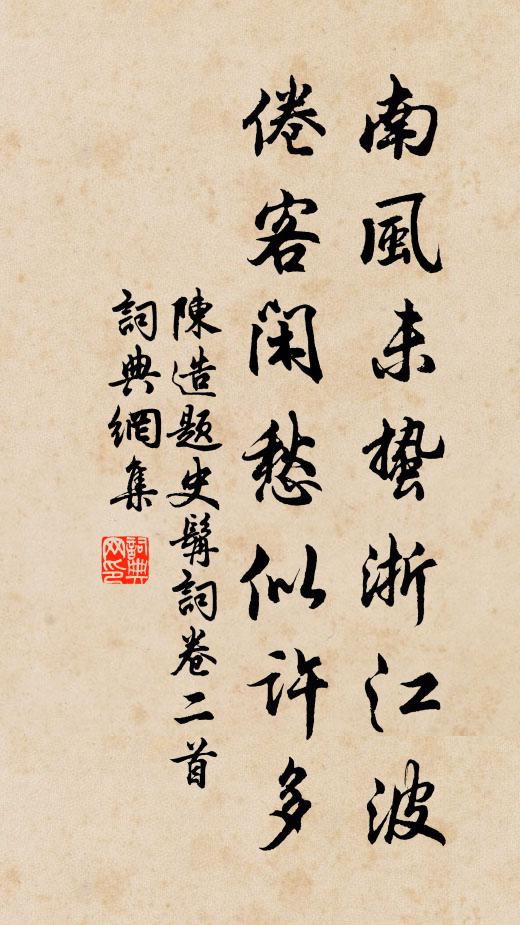 南風未蟄浙江波
倦客閑愁似許多
陳造題史髯詞卷二首
詞典網集
詞典
网印